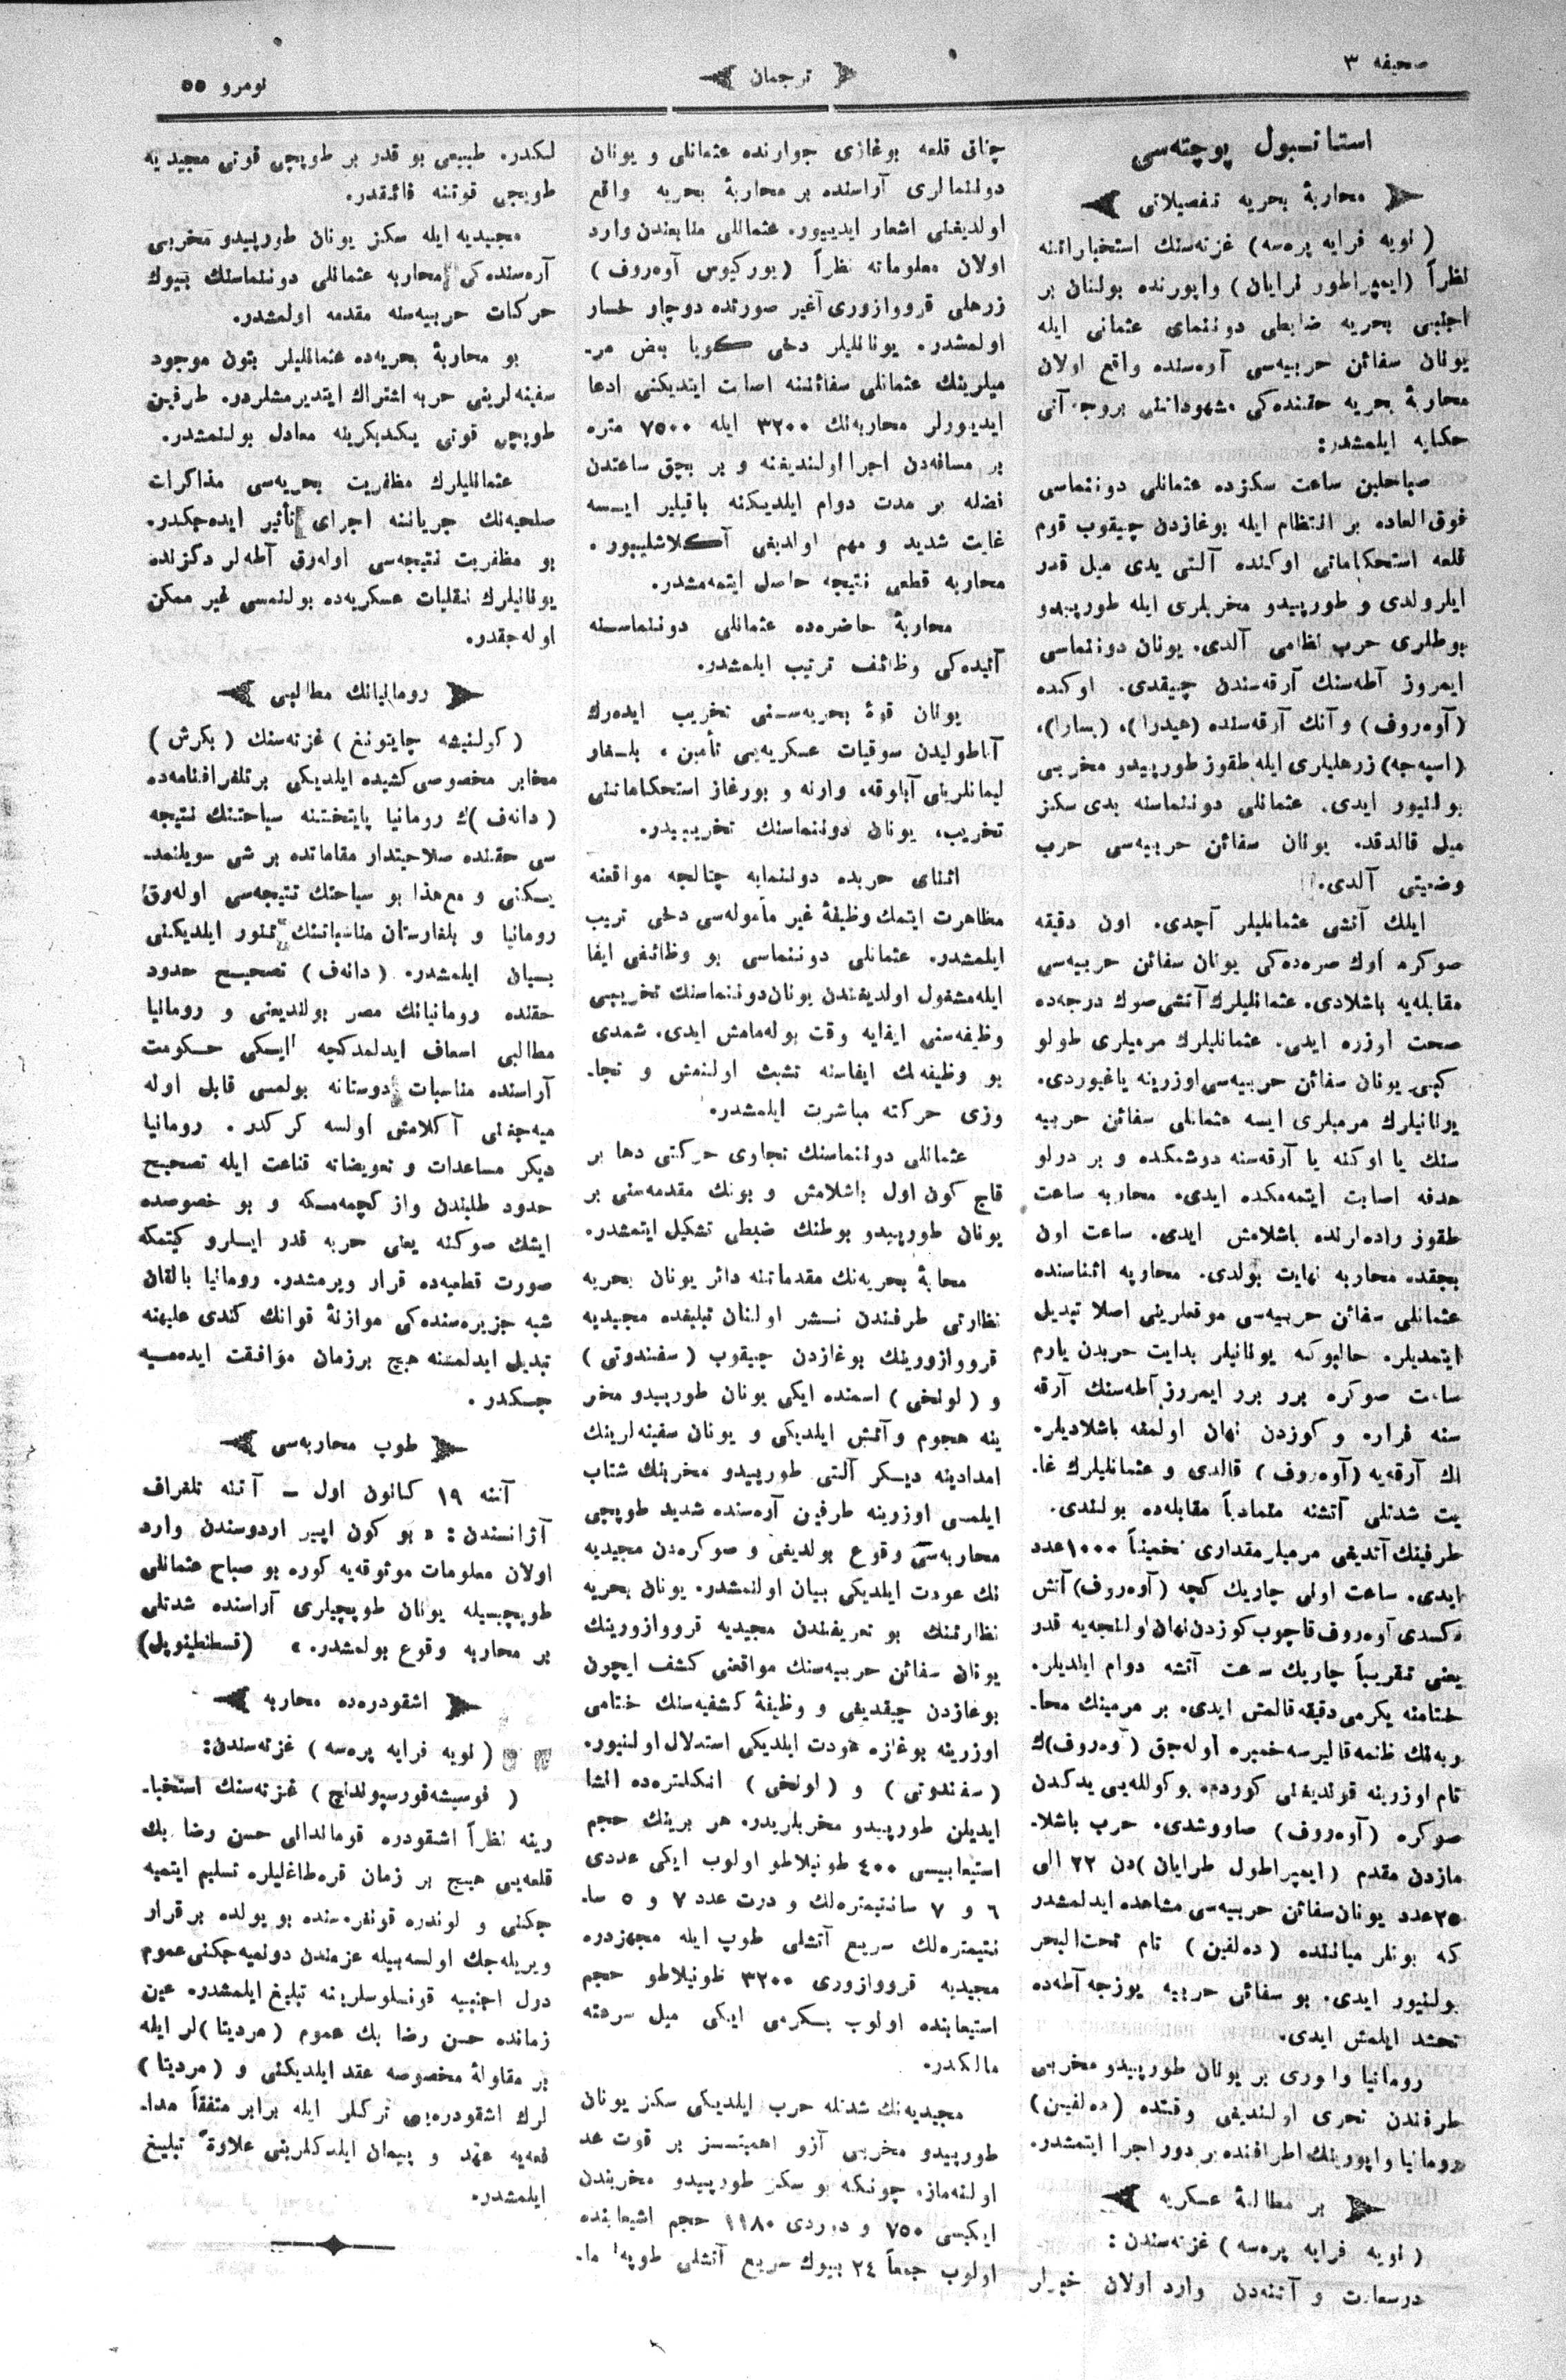 صحیفه ۳
ترجمان
نومرو ۵۵
استانبول پوچته‌سی
محاربهٔ بحریه تفصیلاتی
( نویه فرایه پره‌سه ) غزته‌سنك استخباراتنه
نظراً (ایمپراطور ترایان) واپورنده بولنان بر
اجنبی بحریه ضابطی دوننمای عثمانی ایله
یونان سفائن حربیه‌سی آره‌سنده واقع اولان
محاربهٔ بحریه حقنده‌کی مشهوداتنی بروجه آتی
حکایه ایلمشدر:
صباحلین ساعت سکزده عثمانلی دوننماسی
فوق‌العاده بر انتظام ایله بوغازدن چیقوب قوم
قلعه استحکاماتی اوکنده آلتی یدی میل قدر
ایلرولدی و طورپیدو مخربلری ایله طورپیدو
بوطلری حرب نظامی آلدی. یونان دوننماسی
ایمروز آطه‌سنك آرقه‌سندن چیقدی. اوکده
(آوه‌روف) و آنك آرقه‌سنده (هیدرا)، (پسارا)،
(اسپه‌چه) زرهلیلری ایله طقوز طورپیدو مخربی
بولنیور ایدی. عثمانلی دوننماسنه یدی سکز
میل قالدقده یونان سفائن حربیه‌سی حرب
وضعیتی آلدی.
ایلك آتشی عثمانلیلر آچدی. اون دقیقه
صوکره اوك صره‌ده‌کی یونان سفائن حربیه‌سی
مقابله‌یه باشلادی. عثمانلیلرك آتشی صوك درجه‌ده
صحت اوزره ایدی. عثمانلیلرك مرمیلری طولو
کبی یونان سفائن حربیه‌سی اوزرینه یاغیوردی.
یونانیلرك مرمیلری ایسه عثمانلی سفائن حربیه
سنك یا اوکنه یا آرقه‌سنه دوشمکده و بر درلو
هدفه اصابت ایتمه‌مکده ایدی. محاربه ساعت
طقوز راده‌لرنده باشلامش ایدی. ساعت اون
بچقده محاربه نهایت بولدی. محاربه اثناسنده
عثمانلی سفائن حربیه‌سی موقعلرینی اصلا تبدیل
ایتمدیلر. حالبوکه یونانیلر بدایت حربدن یارم
ساعت صوکره برر برر ایمروز آطه‌سنك آرقه
سنه فراره و کوزدن نهان اولمغه باشلادیلر.
اك آرقه‌یه (آوه‌روف) قالدی و عثمانلیلرك غا-
یت شدتلی آتشنه متمادیاً مقابله‌ده بولندی.
طرفینك آتدیغی مرمیلر مقداری تخمیناً ۱۰۰۰ عدد
ایدی. ساعت اونی چاریك کچه (آوه‌روف) آتش
کسدی آوه‌روف قاچوب کوزدن نهان اولنجه‌یه قدر
یعنی تقریباً چاریك ساعت آتشه دوام ایلدیلر.
ختامنه یکرمی دقیقه قالمش ایدی. بر مرمینك محا-
ربه‌نك ظنمه قالیرسه خمپره اوله‌جق (آوه‌روف)ك
تام اوزرینه قوندیغنی کوردم. بو کولله‌یی یدکدن
صوکره (آوه‌روف) صاووشدی. حرب باشلا-
مازدن مقدم (ایمپراطول طرایان)دن ۲۲ الی
۲۵ عدد یونان سفائن حربیه‌سی مشاهده ایدلمشدر
که بونلر میاننده (ده‌لفین) نام تحت‌البحر
بولنیور ایدی. بو سفائن حربیه بوزجه آطه‌ده
تحشد ایلمش ایدی.
رومانیا واپوری بر یونان طورپیدو مخربی
طرفندن تحری اولندیغی وقتده (ده‌لفین)
رومانیا واپورینك اطرافنده بر دور اجرا ایتمشدر.
بر مطالعهٔ عسکریه
( نویه فرایه پره‌سه ) غزته‌سندن:
درسعادت و آتنه‌دن وارد اولان خبرلر
چناق قلعه بوغازی جوارنده عثمانلی و یونان
دوننمالری آراسنده بر محاربهٔ بحریه واقع
اولدیغنی اشعار ایدیییور. عثمانلی منابعندن وارد
اولان معلوماته نظراً (یورکیوس آوه‌روف)
زرهلی قرووازوری آغیر صورتده دوچار خسار
اولمشدر. یونانلیلر دخی کویا بعض مر-
میلرینك عثمانلی سفائننه اصابت ایتدیکنی ادعا
ایدییورلر محاربه‌نك ۳۲۰۰ ایله ۷۵۰۰ متره
بر مسافه‌دن اجرا اولندیغنه و بر بچق ساعتدن
فضله بر مدت دوام ایلدیکنه باقیلیر ایسه
غایت شدید و مهم اولدیغی آکلاشلییور.
محاربه قطعی نتیجه حاصل ایتمه‌مشدر.
محاربهٔ حاضره‌ده عثمانلی دوننماسنه
آتیده‌کی وظائف ترتیب ایلمشدر.
یونان قوهٔ بحریه‌سنی تخریب ایده‌رك
آناطولیدن سوقیات عسکریه‌یی تأمین، بلغار
لیمانلرینی آبلوقه، وارنه و بورغاز استحکاماتنی
تخریب، یونان دوننماسنك تخریبیدر.
اثنای حربده دوننمایه چتالجه مواقعنه
مظاهرت ایتمك وظیفهٔ غیر مأموله‌سی دخی ترتیب
ایلمشدر. عثمانلی دوننماسی بو وظائفی ایفا
ایله مشغول اولدیغندن یونان دوننماسنك تخریبی
وظیفه‌سنی ایفایه وقت بوله‌مامش ایدی. شمدی
بو وظیفه‌نك ایفاسنه تشبث اولنمش و تجا-
وزی حرکته مباشرت ایلمشدر.
عثمانلی دوننماسنك تجاوزی حرکتی دها بر
قاچ کون اول باشلامش و بونك مقدمه‌سنی بر
یونان طورپیدو بوطنك ضبطی تشکیل ایتمشدر.
محابهٔ بحریه‌نك مقدماتنه دائر یونان بحریه
نظارتی طرفندن نشر اولنان تبلیغده مجیدیه
قرووازورینك بوغازدن چیقوب (سفندونی)
و (لونخی) اسمنده ایکی یونان طورپیدو مخر
بنه هجوم و آتش ایلدیکی و یونان سفینه‌لرینك
امدادینه دیکر آلتی طورپیدو مخربنك شتاب
ایلمسی اوزرینه طرفین آره‌سنده شدید طوپجی
محاربه‌سی وقوع بولدیغی و صوکره‌دن مجیدیه
نك عودت ایلدیکی بیان اولنمشدر. یونان بحریه
نظارتنك بو تعریفندن مجیدیه قرووازورینك
یونان سفائن حربیه‌سنك مواقعنی کشف ایچون
بوغازدن چیقدیغی و وظیفهٔ کشفیه‌سنك ختامی
اوزرینه بوغازه عودت ایلدیکی استدلال اولنیور.
(سفندونی) و (لونخی) انکلتره‌ده انشا
ایدیلن طورپیدو مخربلریدر. هر برینك حجم
استیعابیسی ۴۰۰ طونیلاطو اولوب ایکی عددی
۶ و ۷ سانتیمتره‌لك و درت عدد ۷ و ۵ سا-
نتیمتره‌لك سریع آتشلی طوپ ایله مجهزدر.
مجیدیه قرووازوری ۳۲۰۰ طونیلاطو حجم
استیعابنده اولوب یکرمی ایکی میل سرعته
مالکدر.
مجیدیه‌نك شدتله حرب ایلدیکی سکز یونان
طورپیدو مخربی آزو اهمیتسز بر قوت عد
اولنه‌ماز. چونکه بو سکز طورپیدو مخربندن
ایکیسی ۷۵۰ و دوردی ۱۱۸۰ حجم استیعابنده
اولوب جمعاً ۲۴ بیوك سریع آتشلی طوپه ما-
لکدر. طبیعی بو قدر بر طوپچی قوتی مجیدیه
طوپجی قوتنه فائقدر.
مجیدیه ایله سکز یونان طورپیدو مخربی
آره‌سنده‌کی محاربه عثمانلی دوننماسنك بیوك
حرکات حربیه‌سنه مقدمه اولمشدر.
بو محاربهٔ بحریه‌ده عثمانلیلر بتون موجود
سفینه‌لرینی حربه اشتراك ایتدیرمشلردر. طرفین
طوپچی قوتی یکدیکرینه معادل بولنمشدر.
عثمانلیلرك مظفریت بحریه‌سی مذاکرات
صلحیه‌نك جریاننه اجرای تأثیر ایده‌جکدر.
بو مظفریت نتیجه‌سی اوله‌رق آطه‌لر دکزنده
یونانیلرك نقلیات عسکریه‌ده بولنمسی غیر ممکن
اوله‌جقدر.
رومانیانك مطالبی
(کولنیشه چایتونغ) غزته‌سنك (بکرش)
مخابر مخصوصی کشیده ایلدیکی بر تلغرافنامه‌ده
(دانه‌ف)ك رومانیا پایتختنه سیاحتنك نتیجه
سی حقنده صلاحیتدار مقاماتده بر شی سویلنمد-
یکنی و مع‌هذا بو سیاحتك نتیجه‌سی اوله‌رق
رومانیا و بلغارستان مناسباتنك تنور ایلدیکنی
بیان ایلمشدر. (دانه‌ف) تصحیح حدود
حقنده رومانیانك مصر بولندیغنی و رومانیا
مطالبی اسعاف ایدلمدکجه ایکی حکومت
آراسنده مناسبات دوستانه بولمسی قابل اوله
میه‌جغنی آکلامش اولسه کرکدر. رومانیا
دیکر مساعدات و تعویضاته قناعت ایله تصحیح
حدود طلبندن واز کچمه‌مکه و بو خصوصده
ایشك صوکنه یعنی حربه قدر ایلرو کیتمکه
صورت قطعیه‌ده قرار ویرمشدر. رومانیا بالقان
شبه جزیره‌سنده‌کی موازنهٔ قوانك کندی علیهنه
تبدیل ایدلمسنه هیچ برزمان موافقت ایده‌میه
جکدر.
طوپ محاربه‌سی
آتنه ۱۹ کانون اول – آتنه تلغراف
آژانسندن: «بو کون اپیر اردوسندن وارد
اولان معلومات موثوقه‌یه کوره بو صباح عثمانلی
طوپچیسیله یونان طوپچیلری آراسنده شدتلی
بر محاربه وقوع بولمشدر.» (قسطنطینوپل)
اشقودره‌ده محاربه
( نویه فرایه پره‌سه ) غزته‌سندن:
( فوسیشه قورسپوندانچ ) غزته‌سنك استخبا-
رینه نظراً اشقودره قوماندانی حسن رضا بك
قلعه‌یی هیچ بر زمان قره‌طاغلیلره تسلیم ایتمیه
جکنی و لوندره قونفره‌سنده بو یولده بر قرار
ویریله‌جك اولسه بیله عزمندن دونمیه‌جکنی عموم
دول اجنبیه قونسلوسلرینه تبلیغ ایلمشدر. عین
زمانده حسن رضا بك عموم (مردیتا)لر ایله
بر مقاولهٔ مخصوصه عقد ایلدیکنی و (مردیتا)
لرك اشقودره‌یی ترکلر ایله برابر متفقاً مدا-
فعه‌یه عهد و پیمان ایلدکلرینی علاوةً تبلیغ
ایلمشدر.